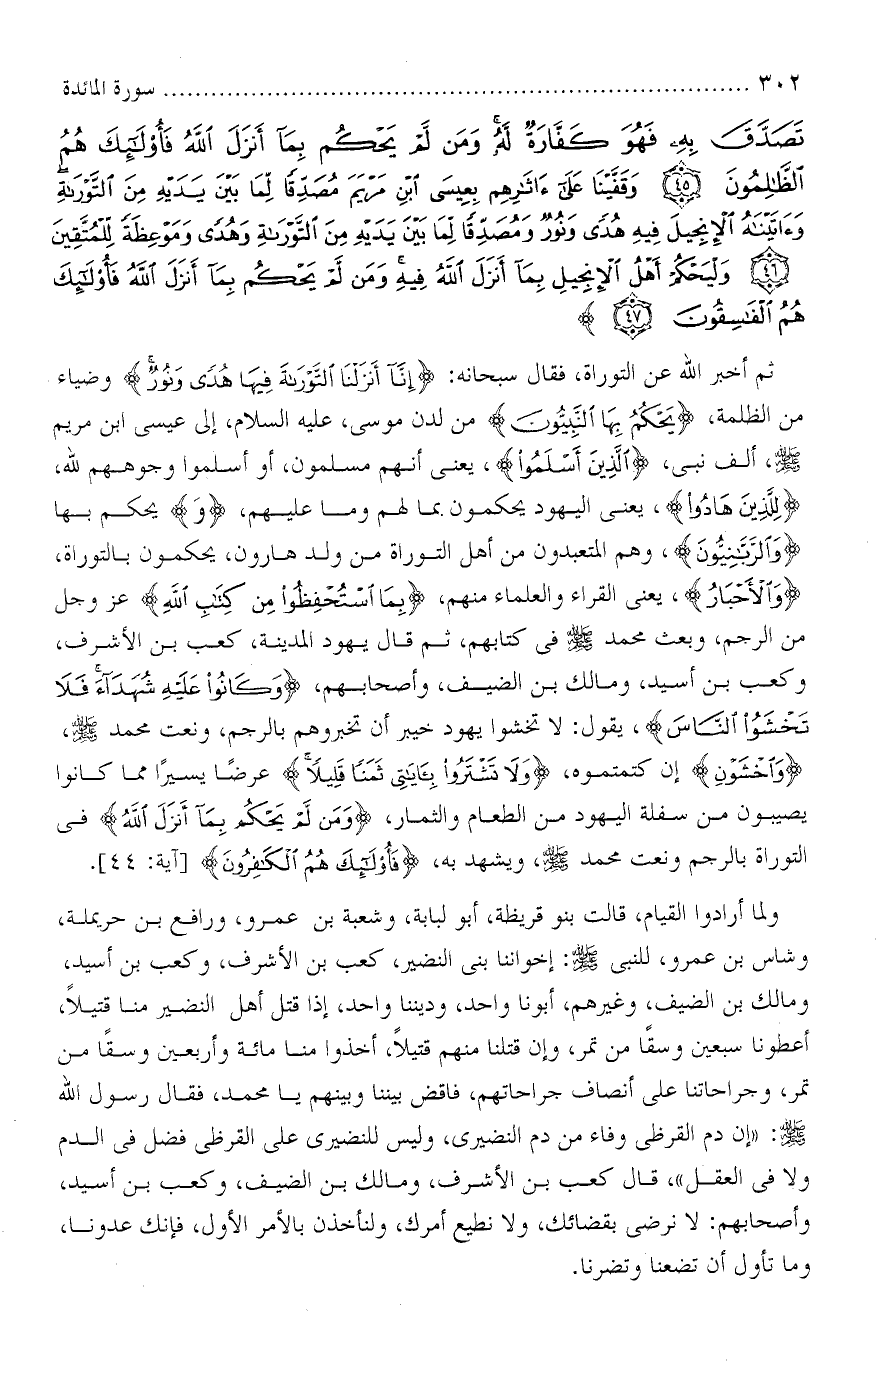 ٣٠٢ ........................................ سورة المائدة
تَصَدَّقَ بِهِ فَهُوَ كَفَّارَةٌ لَّهُ وَمَن لَّمْ يَحْكُم بِمَا أَنزَلَ اللَّهُ فَأُوْلَٰئِكَ هُمُ
الظَّالِمُونَ ﴿٤٥﴾ وَقَفَّيْنَا عَلَىٰ ءَاثَارِهِم بِعِيسَى ابْنِ مَرْيَمَ مُصَدِّقًا لِّمَا بَيْنَ يَدَيْهِ مِنَ التَّوْرَاةِ
وَءَاتَيْنَاهُ الْإِنجِيلَ فِيهِ هُدًى وَنُورٌ وَمُصَدِّقًا لِّمَا بَيْنَ يَدَيْهِ مِنَ التَّوْرَاةِ وَهُدًى وَمَوْعِظَةً لِّلْمُتَّقِينَ
﴿٤٦﴾ وَلْيَحْكُمْ أَهْلُ الْإِنجِيلِ بِمَا أَنزَلَ اللَّهُ فِيهِ وَمَن لَّمْ يَحْكُم بِمَا أَنزَلَ اللَّهُ فَأُوْلَٰئِكَ
هُمُ الْفَاسِقُونَ ﴿٤٧﴾ ﴾
ثم أخبر الله عن التوراة، فقال سبحانه: ﴿إِنَّا أَنزَلْنَا التَّوْرَاةَ فِيهَا هُدًى وَنُورٌ﴾ وضياء
من الظلمة، ﴿يَحْكُمُ بِهَا النَّبِيُّونَ﴾ من لدن موسى، عليه السلام، إلى عيسى ابن مريم
ﷺ، ألف نبى، ﴿الَّذِينَ أَسْلَمُواْ﴾، يعنى أنهم مسلمون، أو أسلموا وجوههم لله،
﴿لِلَّذِينَ هَادُواْ﴾، يعنى اليهود يحكمون بما لهم وما عليهم، ﴿وَ﴾ يحكم بها
﴿وَالرَّبَّانِيُّونَ﴾، وهم المتعبدون من أهل التوراة من ولد هارون، يحكمون بالتوراة،
﴿وَالْأَحْبَارُ﴾، يعنى القراء والعلماء منهم، ﴿بِمَا اسْتُحْفِظُواْ مِن كِتَابِ اللَّهِ﴾ عز وجل
من الرجم، وبعث محمد ﷺ فى كتابهم، ثم قال يهود المدينة، كعب بن الأشرف،
وكعب بن أسيد، ومالك بن الضيف، وأصحابهم، ﴿وَكَانُواْ عَلَيْهِ شُهَدَاءَ فَلَا
تَخْشَوُاْ النَّاسَ﴾، يقول: لا تخشوا يهود خيبر أن تخبروهم بالرجم، ونعت محمد ﷺ،
﴿وَاخْشَوْنِ﴾ إن كتمتموه، ﴿وَلَا تَشْتَرُواْ بِـَٔايَاتِى ثَمَنًا قَلِيلًا﴾ عرضًا يسيرًا مما كانوا
يصيبون من سفلة اليهود من الطعام والثمار، ﴿وَمَن لَّمْ يَحْكُم بِمَا أَنزَلَ اللَّهُ﴾ فى
التوراة بالرجم ونعت محمد ﷺ، ويشهد به، ﴿فَأُوْلَٰئِكَ هُمُ الْكَافِرُونَ﴾ [آية: ٤٤].
ولما أرادوا القيام، قالت بنو قريظة، أبو لبابة، وشعبة بن عمرو، ورافع بن حريملة،
وشاس بن عمرو، للنبى ﷺ: إخواننا بنى النضير، كعب بن الأشرف، وكعب بن أسيد،
ومالك بن الضيف، وغيرهم، أبونا واحد، وديننا واحد، إذا قتل أهل النضير منا قتيلاً،
أعطونا سبعين وسقًا من تمر، وإن قتلنا منهم قتيلاً، أخذوا منا مائة وأربعين وسقًا من
تمر، وجراحاتنا على أنصاف جراحاتهم، فاقض بيننا وبينهم يا محمد، فقال رسول الله
ﷺ: «إن دم القرظى وفاء من دم النضيرى، وليس للنضيرى على القرظى فضل فى الدم
ولا فى العقل»، قال كعب بن الأشرف، ومالك بن الضيف، وكعب بن أسيد،
وأصحابهم: لا نرضى بقضائك، ولا نطيع أمرك، ولنأخذن بالأمر الأول، فإنك عدونا،
وما تأول أن تضعنا وتضرنا.